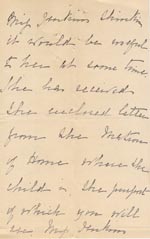 Miss Jenkins thinks
it would be useful
to her at some time
She has received
the enclosed letter
from the Matron
of Home where the
child is the purport
of which you will
see Miss Jenkins